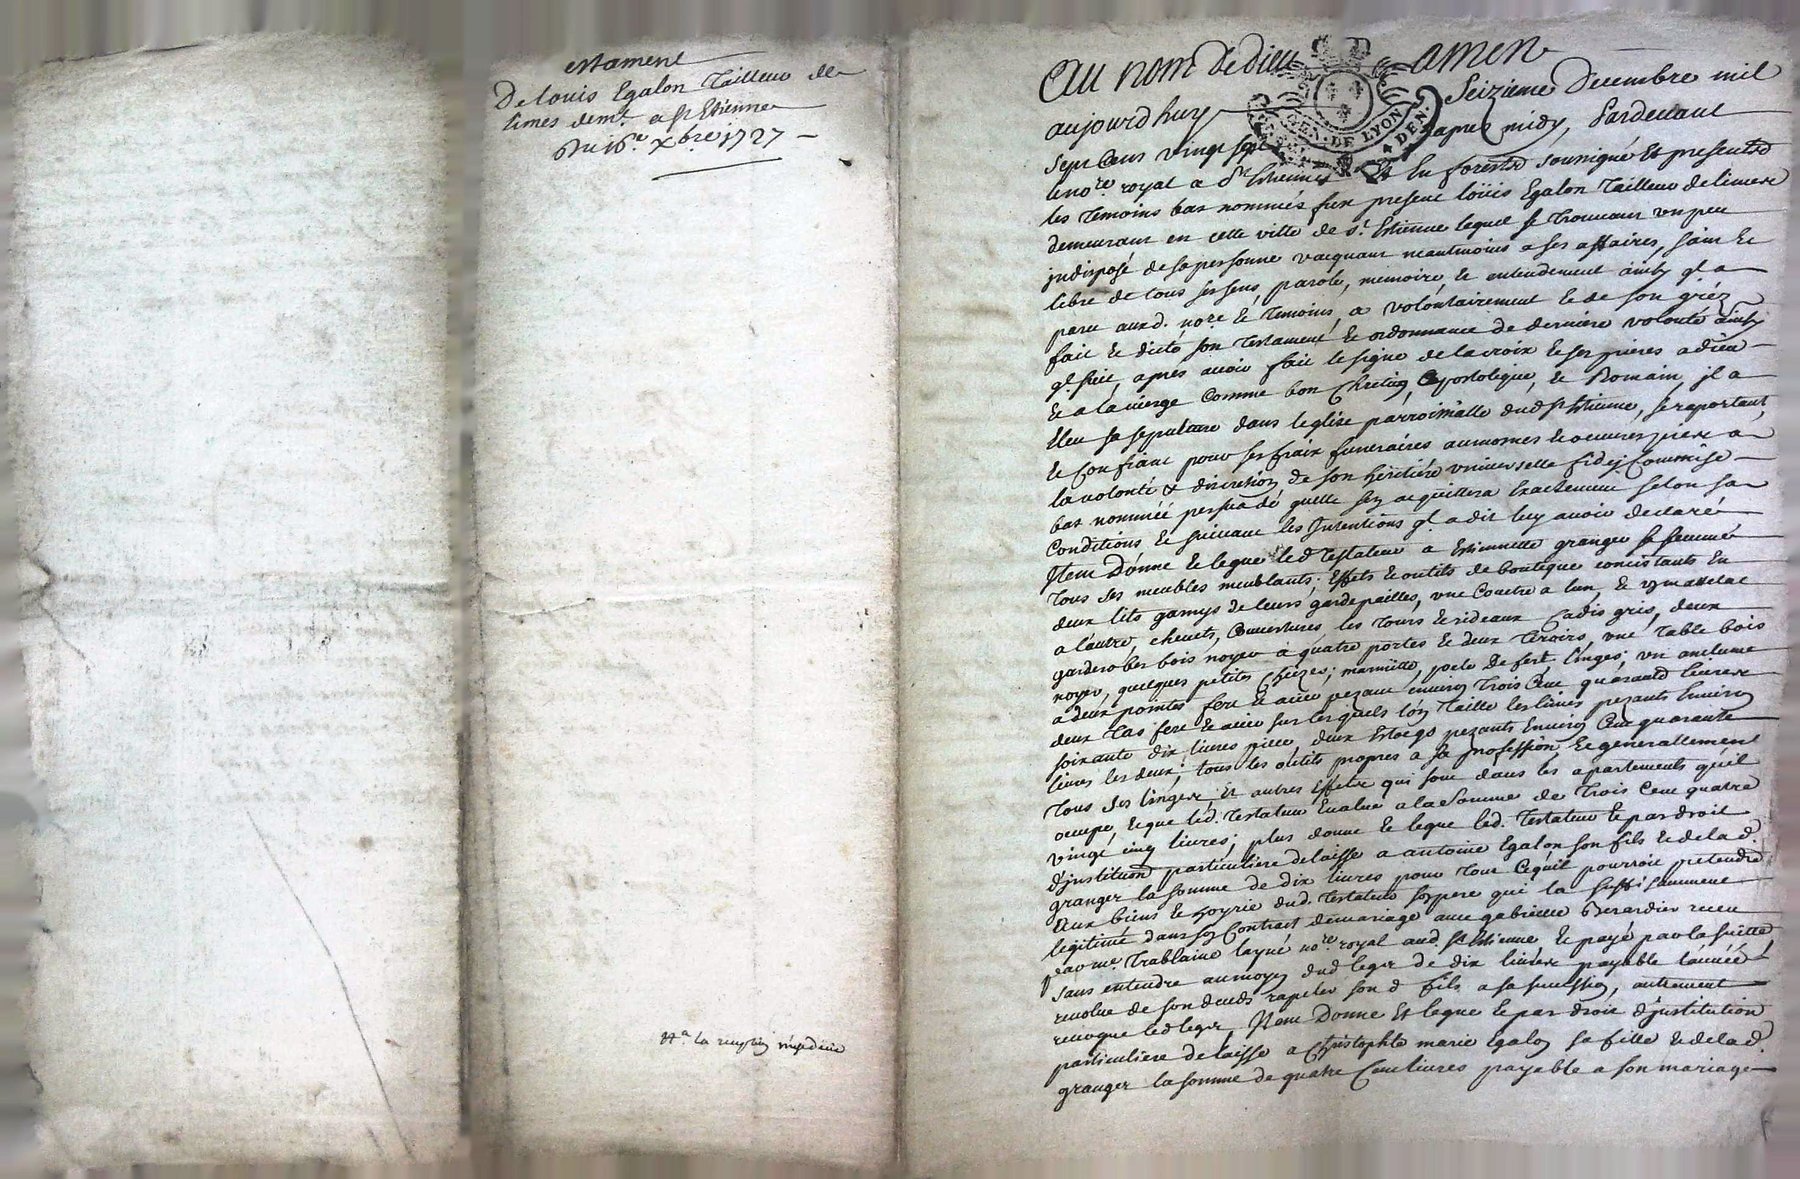 estament
De Louis Egalon Tailleur de
limes demt a st Etienne
Du 16e xbre 1727
Au nom de dieu amen
aujourdhuy Seizieme Decembre mil
Sept Cens vingt sept apres midy, Pardevant
le nore royal a St Etienne En forests soussigné Et presents
les Temoins bas nommés fut present Loüis Egalon Tailleur de limes
demeurant en cette ville de st Estienne lequel se trouvant un peu
jndisposé de sa personne vacquant neantmoins a ses affaires, sain Et
libre de tous ses sens, parole, memoire, Et entendement ainsy ql a
paru aud. nore Et Temoins, a volontairement Et de son gréz
fait Et dicté son Testament Et ordonnance de derniere volonté ainsy
ql suit, apres avoir fait le signe de la croix Et ses prieres a dieu
Et a la vierge Comme bon Chretien, Apostolique, Et Romain, jl a
Eleu sa sepulture dans leglise parroissialle dud st Etienne, se raportant,
Et Confiant pour ses fraix funeraires aumornes Et oeuvres pies a
la volonté & discretion de son heritiere universelle fidej Commise
bas nommée persuadé quelle sen acquittera Exactement selon sa
Conditions Et suivant les Jntentions ql a dit luy avoir declaré
Jtem Donne Et legue led Testateur a Estiennette granger sa femme
Tous ses meubles meublants, Effets Et outils de boutique consistants En
deux lits garnys de leurs gardepailles, une Couetre a lun, Et un mattelat
a lautre, chevets, Couvertures les tours Et rideaux Cadis gris, deux
garderobes bois noyer a quatre portes Et deux Tiroirs, une Table bois
noyer, quelques petites Cheizes, marmitte, poele de fert, linges, un enclume
a deux pointes fere Et acier pezant environ Trois Cent quarante livres
deux Tas fere Et acier sur lesquels lon Taille les limes pezants Environ
soixante dix livres piece deux Estocqs pezants Environ Cent quarante
livres les deux, tous les outils propres a sa profession Et generallement
Tous ses linges Et autres Effets qui sont dans les apartements quil
occupe, Et que led. Testateur Evalue a la Somme de Trois Cent quatre
vingt cinq livres, plus donne Et legue led. Testateur Et par droit
djnstitution particuliere delaisse a antoine Egalon son fils Et de lad
granger la somme de dix livres pour Tout Ce quil pourroit pretendre
Aux biens Et hoyrie dud. Testateur son pere qui la suffisamment
legitimé dans son Contract de mariage avec gabrielle Berardier receu
par me. Trablaine layné nore royal aud. st Etienne, Et payé par la suitte
sans entendre au moyen dud legs de dix livres payable lannée
revolue de son deceds rapeler son d fils a sa succession, autrement
revoque led legs, Jtem Donne Et legue Et par droit djnstitution
particuliere delaisse a Christophle marie Egalon sa fille Et de lad
granger la somme de quatre Cent livres payable a son mariage
la